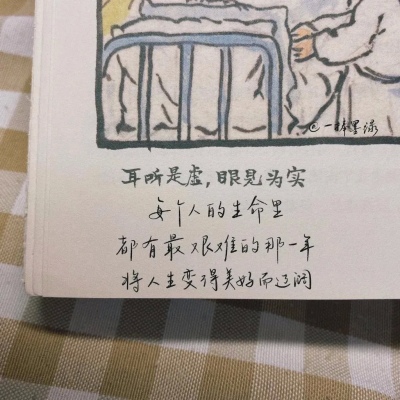 @一桥墨渌
耳听是虚，眼见为实
每个人的生命里
都有最艰难的那一年
将人生变得美好而辽阔